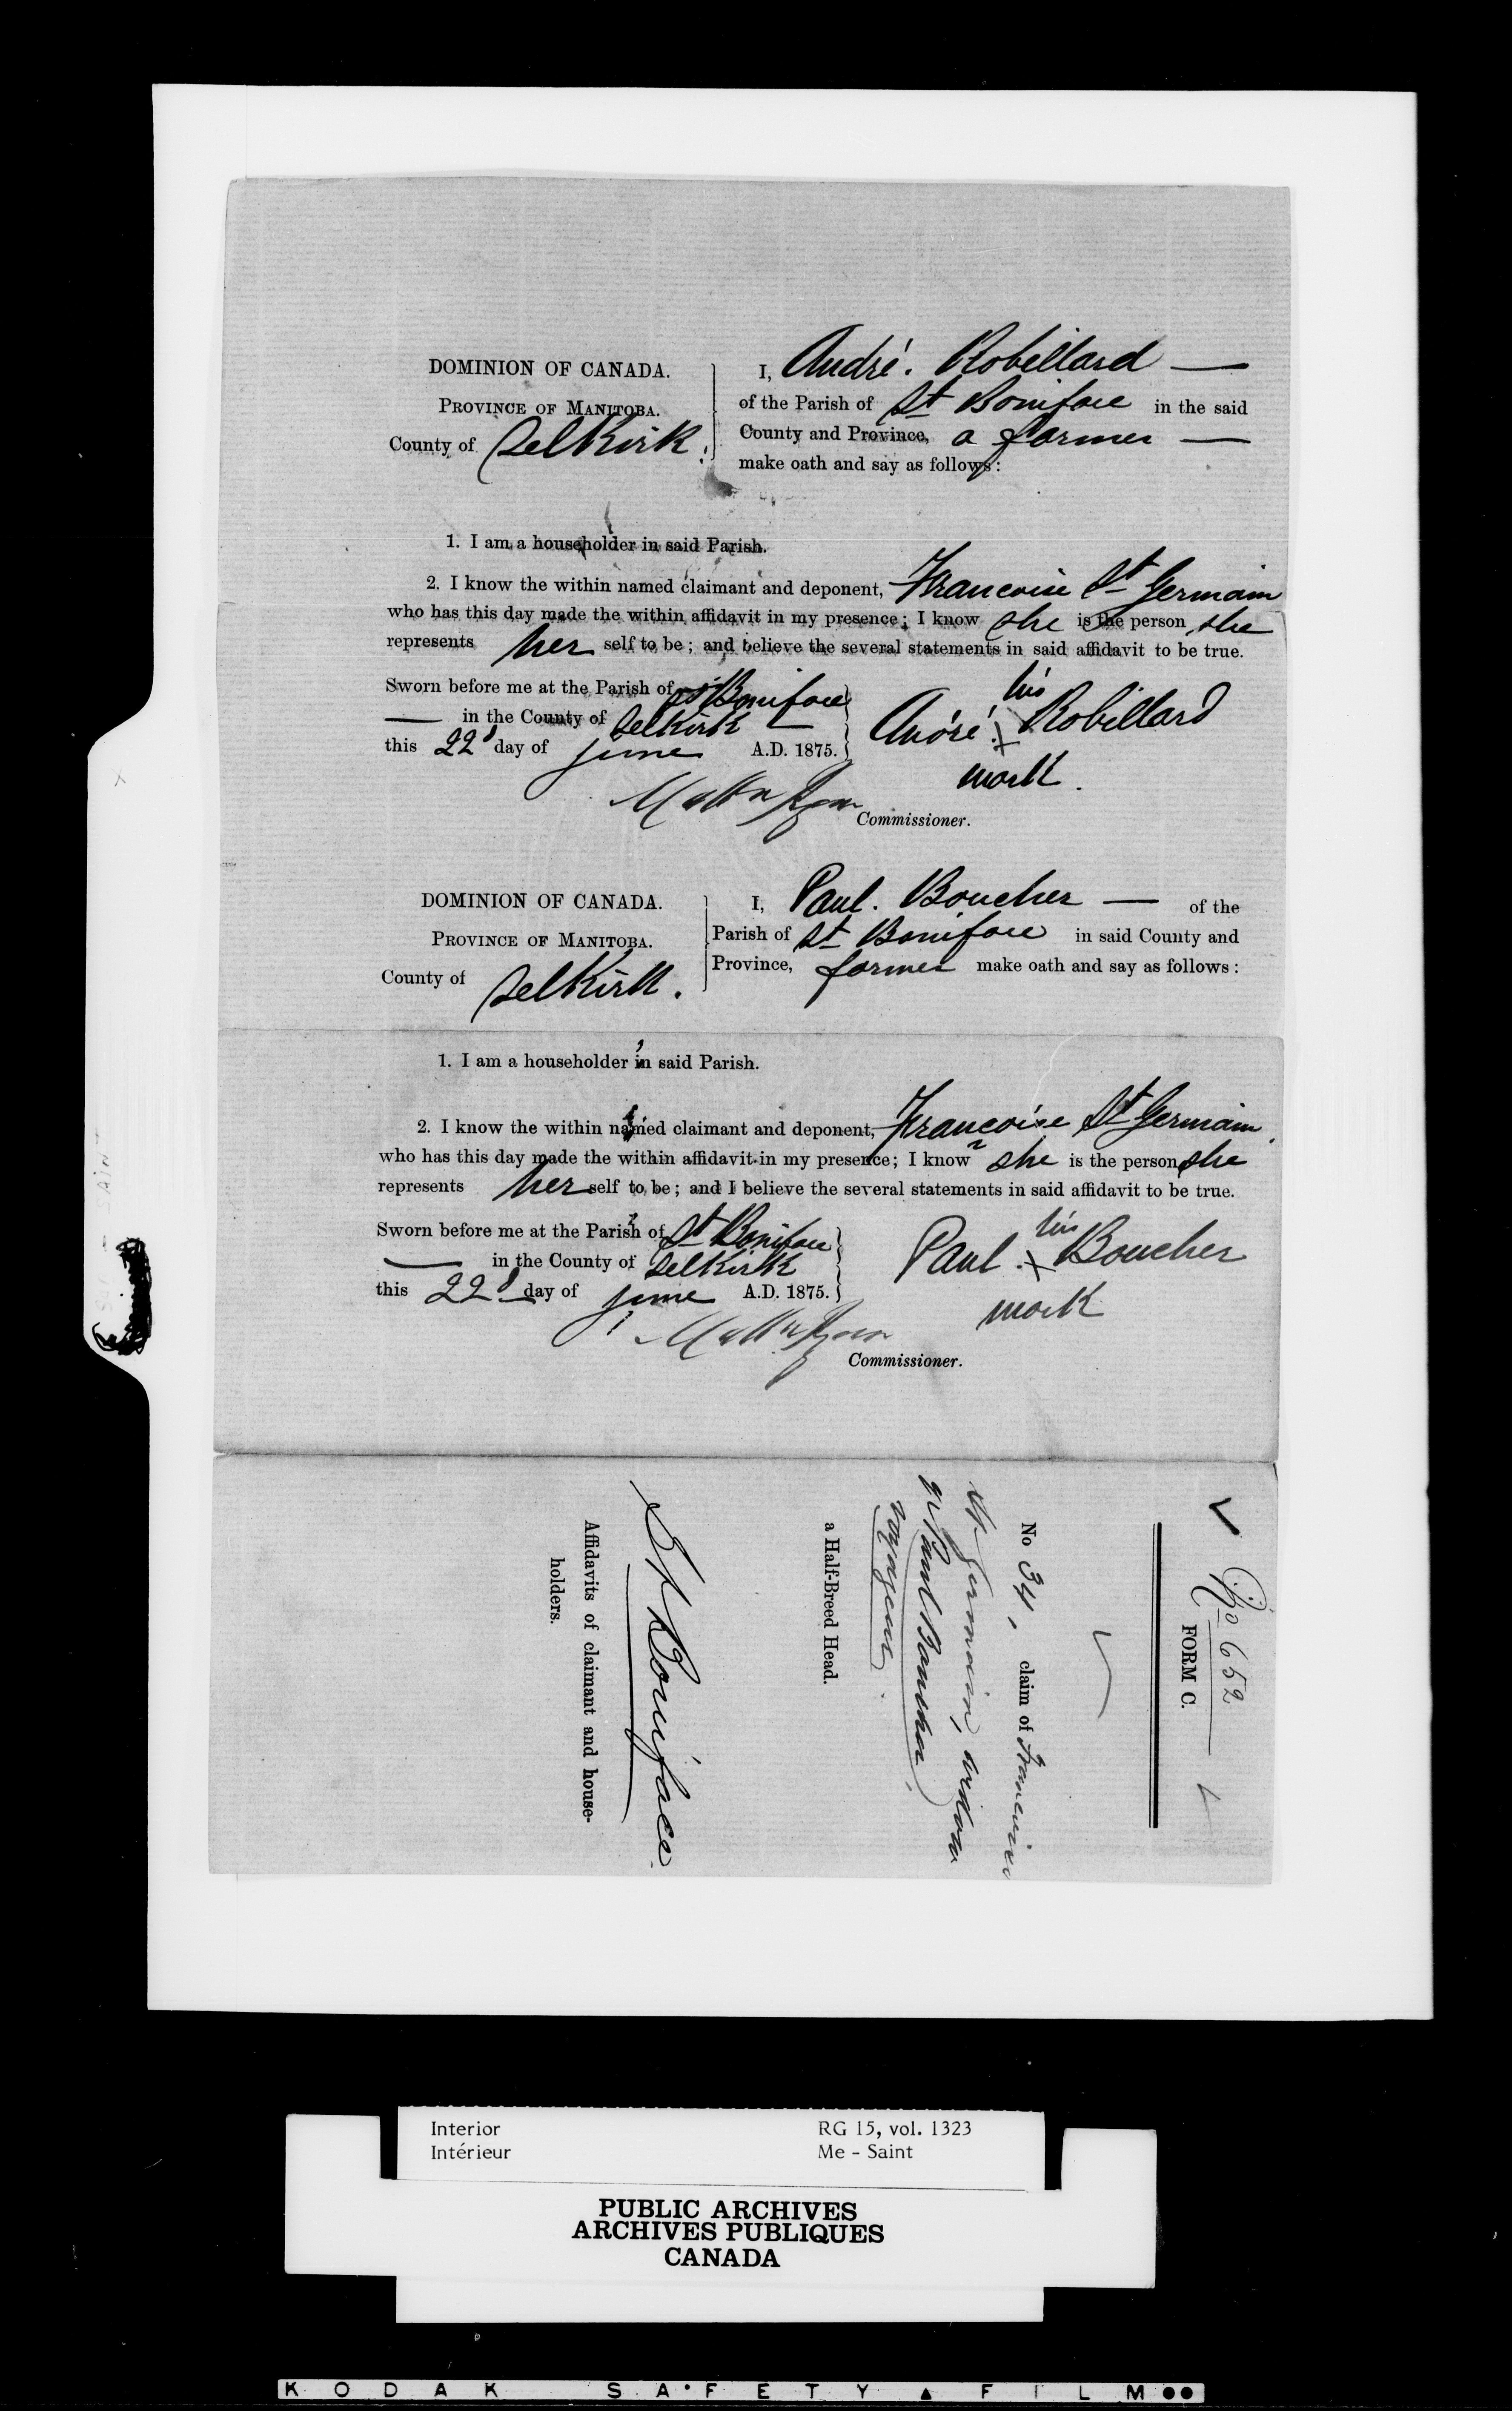 DOMINION OF CANADA.
PROVINCE OF MANITOBA.
County of Selkirk.
I, André. Robillard —
of the Parish of St Boniface in the said
County and Province, a farmer —
make oath and say as follows:
1. I am a householder in said Parish.
2. I know the within named claimant and deponent, Francoise St Germain
who has this day made the within affidavit in my presence; I know she is the person she
represents her self to be; and believe the several statements in said affidavit to be true.
Sworn before me at the Parish of St Boniface
— in the County of Selkirk —
this 22d day of june A.D. 1875.
his
André. X Robillard
mark.
Commissioner.
DOMINION OF CANADA.
PROVINCE OF MANITOBA.
County of Selkirk.
I, Paul. Boucher — of the
Parish of St Boniface in said County and
Province, farmer make oath and say as follows:
1. I am a householder in said Parish.
2. I know the within named claimant and deponent, Francoise St Germain
who has this day made the within affidavit in my presence; I know she is the person she
represents her self to be; and I believe the several statements in said affidavit to be true.
Sworn before me at the Parish of St Boniface
— in the County of Selkirk
this 22d day of june A.D. 1875.
his
Paul. X Boucher
mark
Commissioner.
652
FORM C.
No 34, claim of Francoise
St Germain, widow
of Paul Boucher,
voyageur.
a Half-Breed Head.
St Boniface
Affidavits of claimant and house-
holders.
Interior
Intérieur
RG 15, vol. 1323
Me - Saint
PUBLIC ARCHIVES
ARCHIVES PUBLIQUES
CANADA
KODAK SAFETY FILM